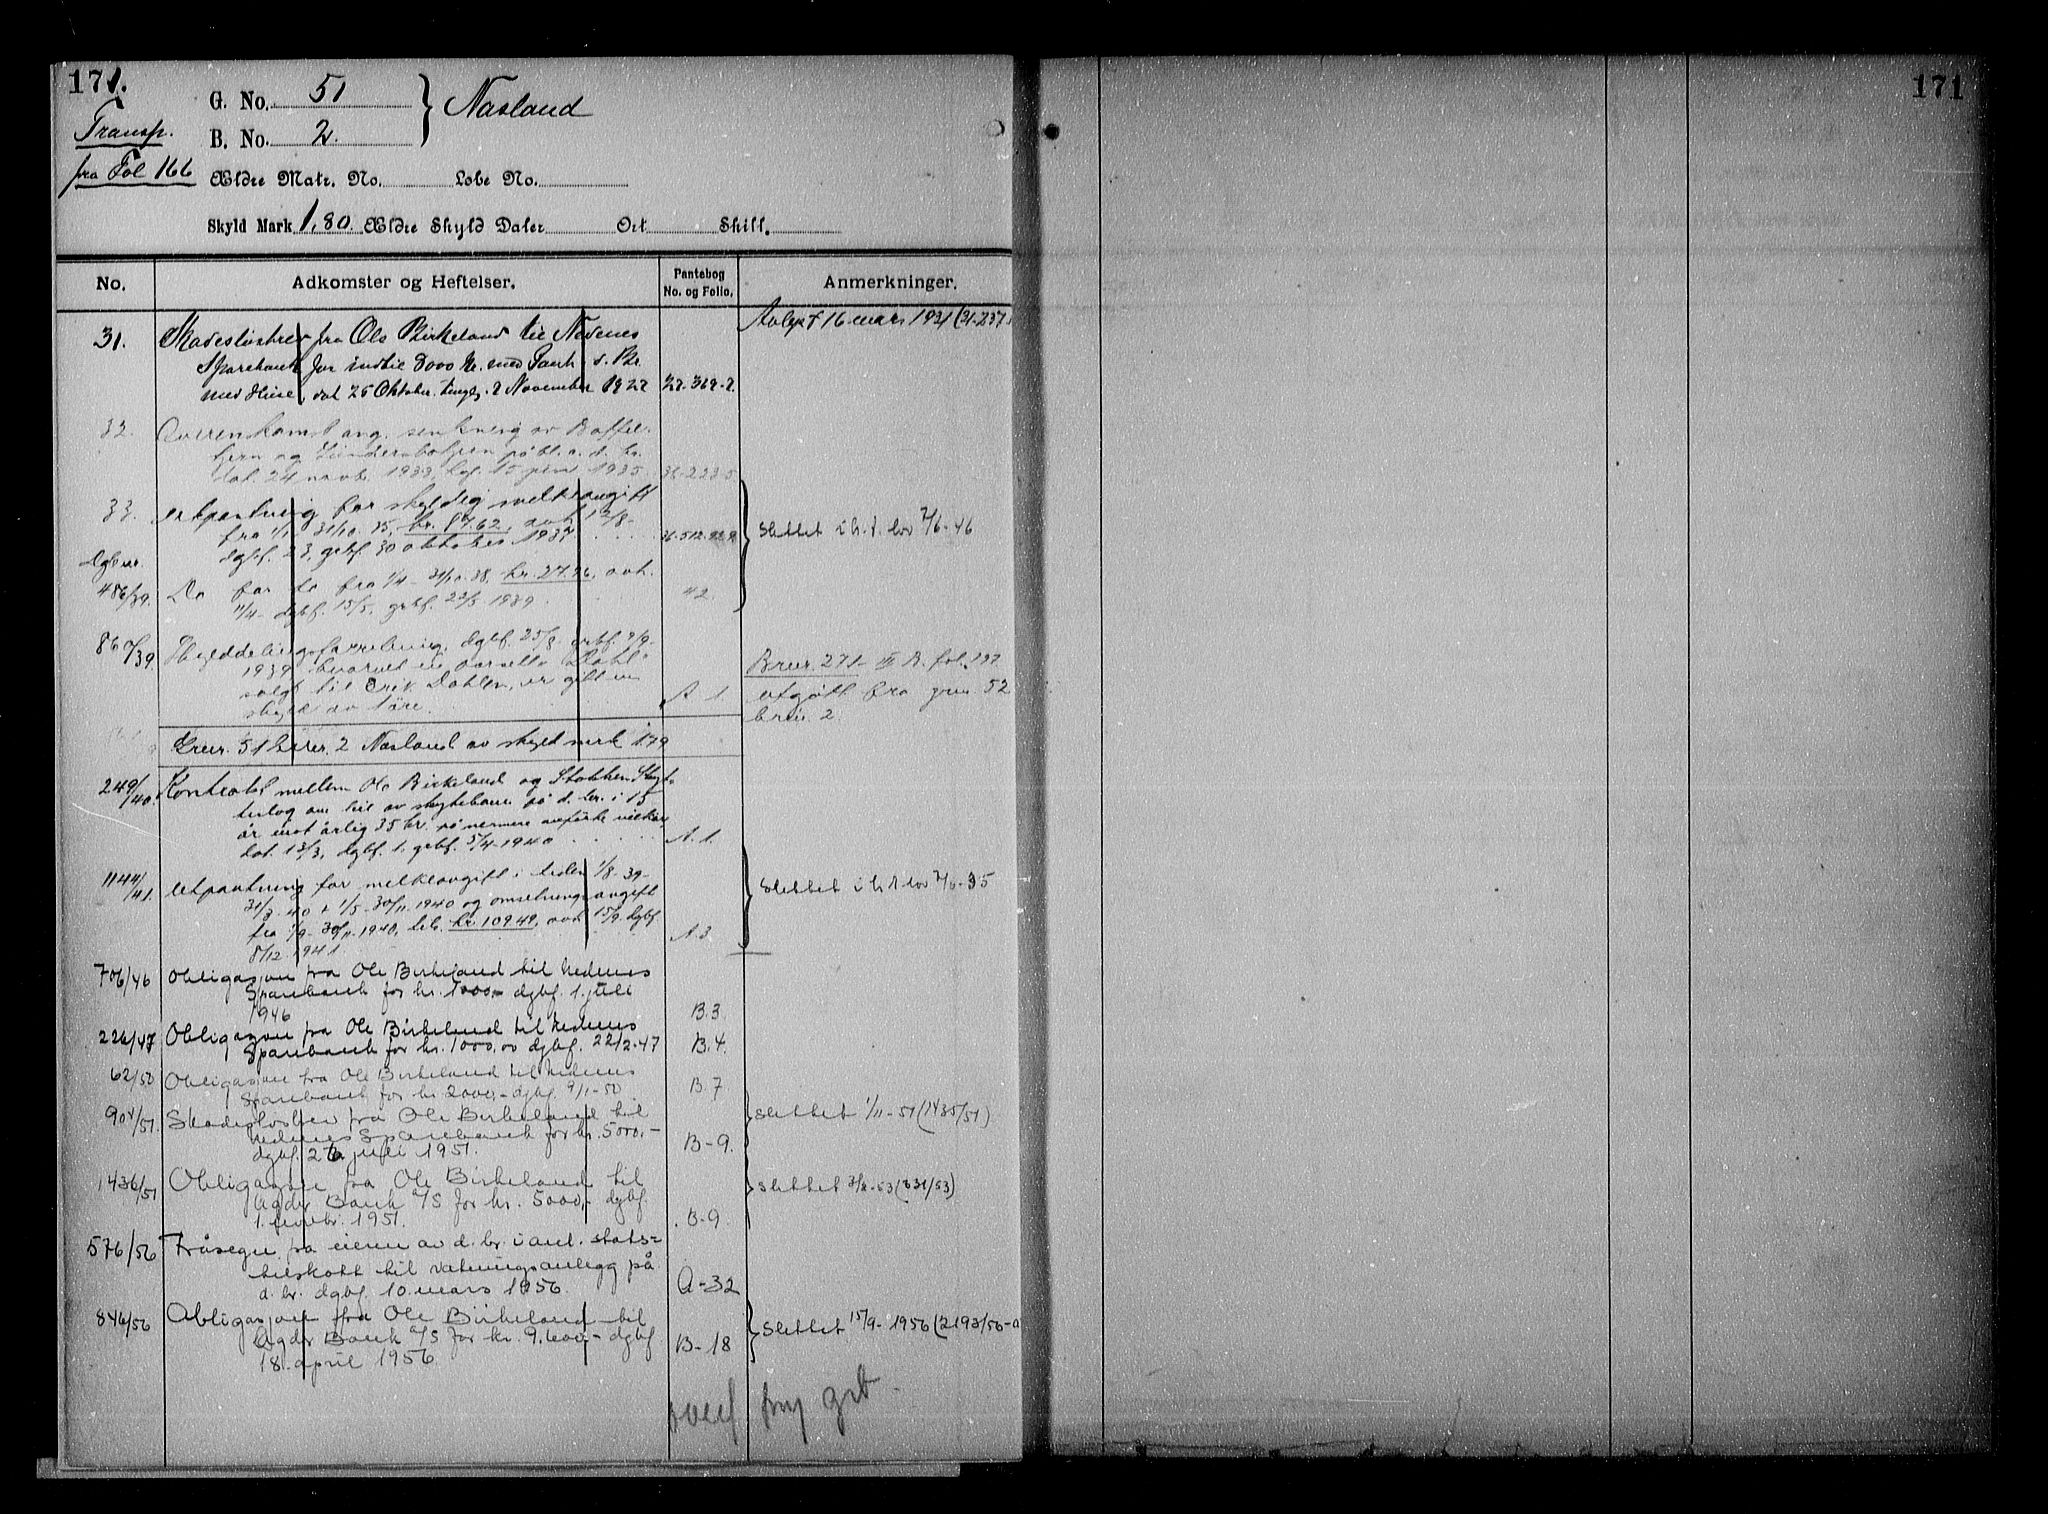 171.
Transp.
fra Fol 166
G. No. 51
B. No. 2.
Nasland
Ældre Matr. No. Løbe No.
Skyld Mark 1,80. Ældre Skyld Daler Ort Skill.
No. Adkomster og Heftelser. Pantebog No. og Folio. Anmerkninger.
31. Skadesløsbrev fra Ole Birkeland til Nedenes Avlyst 16 mars 1931 (31-237)
Sparebank for indtil 8000 kr. med Pant i d. Br.
med Huse, dat 26 Oktober, tingl. 2 November 1927 27-369-7.
32. Overenskomst ang. senkning av
og på bl. a. d. br.
dat. 24 novbr. 1933, dgf. 15 juni 1935 36-223-5
33. Utpantning for skyldig melkeavgift
fra 1/1 - 31/10 35, kr. 87.62, avh. 12/8-
dgbf. 23, grbf. 30 oktober 1937 36-512 Slettet i h. t. lov 7/6-46
Dgb nr.
486/39. Do for do fra 1/4 - 31/10. 38, kr. 27.26, avh.
11/4- dgbf. 15/5, grbf. 22/5 1939 42
867/39. Skylddelingsforretning, dgbf. 25/8 grbf. 2/9-
1939 hvorved en parsell "Dahl" Brnr. 271 fol. 197
solgt til Erik Dahlen, er gitt en utgått fra gnr. 52
skyld av 1 øre. A 1 brnr. 2.
Gnr. 51 brnr. 2 Nasland av skyld mark 1.79
249/40. Kontrakt mellem Ole Birkeland og Stokken Skyt-
terlag om leie av skytebane på d. br. i 15
år mot årlig 35 kr. på nermere anførte vilkår,
dat. 13/3, dgbf. 1, grbf. 5/4-1940 A. 1.
1144/41. Utpantning for melkeavgift i tiden 1/8-39- Slettet i h t lov 7/6-35
31/3-40 + 1/5-30/11. 1940 og omsetningsavgift
fra 1/9-30/11-1940, tils. kr. 109.49, avh. 15/9. dgbf.
8/12 1941. A. 3
706/46 Obligasjon fra Ole Birkeland til Nedenes
Sparebank for kr. 1000,- dgbf. 1. juli
1946 B.3.
226/47 Obligasjon fra Ole Birkeland til Nedenes
Sparebank for kr. 1000,00 dgbf. 22/2-47 B.4.
62/50 Obligasjon fra Ole Birkeland til Nedenes
Sparebank for kr 2000,- dgbf. 9/1-50 B.7
904/51. Skadesløsbrev fra Ole Birkeland til Slettet 1/11-51 (1435/51)
Nedenes Sparebank for kr. 5000,-
dgbf. 26 juli 1951. B-9.
1436/51 Obligasjon fra Ole Birkeland til Slettet 3/8-53 (831/53)
Agder Bank A/S for kr. 5000,- dgbf.
1. novbr. 1951. B-9
576/56 Fråsegn fra eieren av d. br. i anl. stats-
tilskott til vatningsanlegg på
d. br. dgbf. 10. mars 1956. A-32
846/56 Obligasjon fra Ole Birkeland til Slettet 15/9-1956 (2193/56
Agder Bank A/S for kr. 9.000,- dgbf
18. april 1956. B-18
overf ny grb.
171